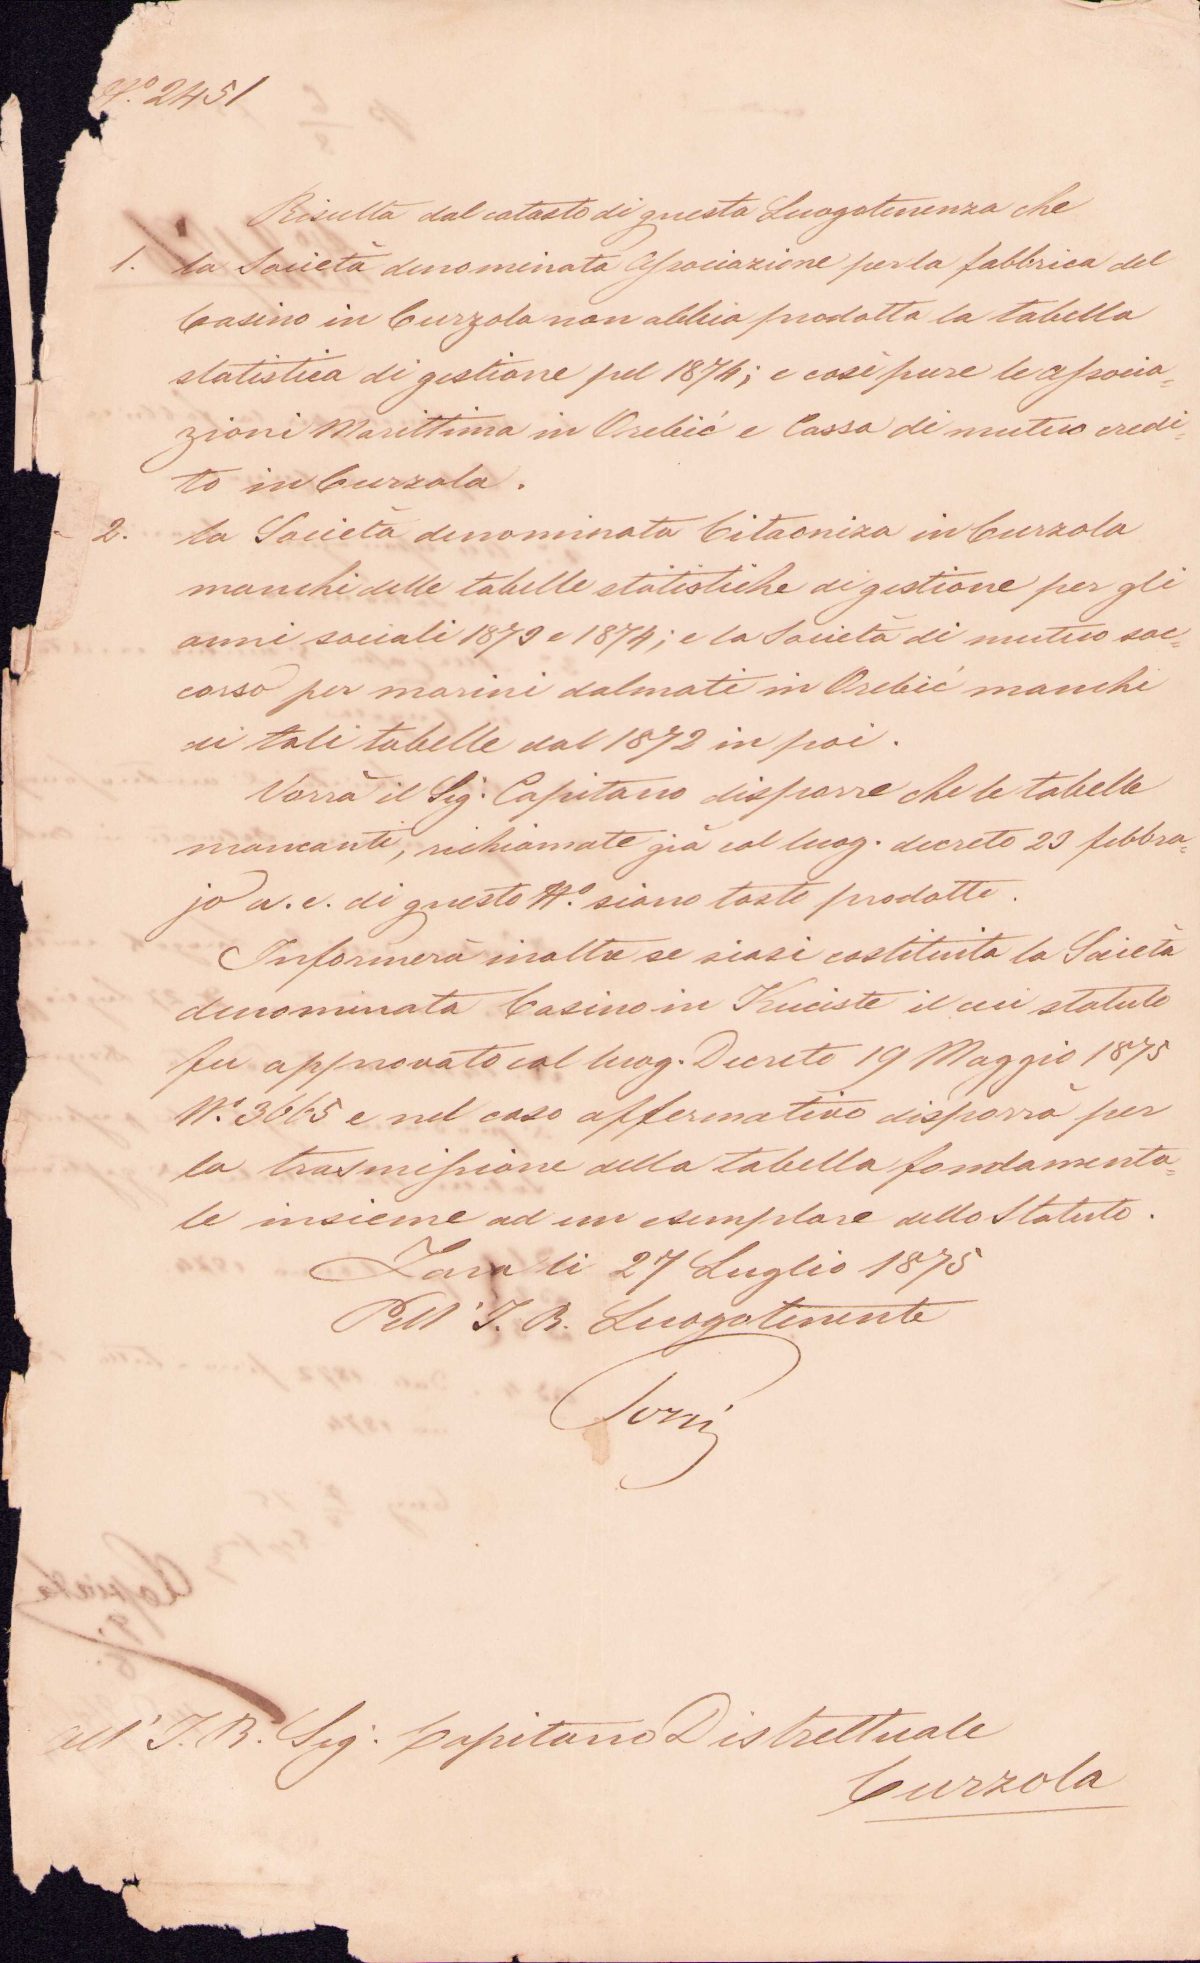 N.º 2451
Risulta dal catasto di questa Luogotenenza che
1. la Società denominata Associazione per la fabbrica del
Casino in Curzola non abbia prodotta la tabella
statistica di gestione pel 1874; e così pure le associa=
zioni Marittima in Orebić e Cassa di mutuo credi=
to in Curzola.
2. la Società denominata Citaoniza in Curzola
manchi delle tabelle statistiche di gestione per gli
anni sociali 1873 e 1874; e la Società di mutuo soc=
corso per marini dalmati in Orebić manchi
di tali tabelle dal 1872 in poi.
Vorrà il Sig. Capitano disporre che le tabelle
mancanti, richiamate già col luog. decreto 23 febbra=
jo a. c. di questo N.º siano tosto prodotte.
Informerà inoltre se siasi costituita la Società
denominata Casino in Kuciste il cui statuto
fu approvato col luog. Decreto 19 Maggio 1875
N.º 3665 e nel caso affermativo disporrà per
la trasmissione della tabella fondamenta=
le insieme ad un esemplare dello Statuto.
Zara li 27 Luglio 1875
Pell' I. R. Luogotenente
All' I. R. Sig. Capitano Distrettuale
Curzola